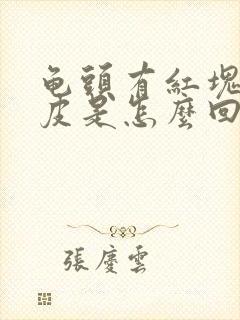 龟頭有紅塊
皮是怎麼回
張慶雲